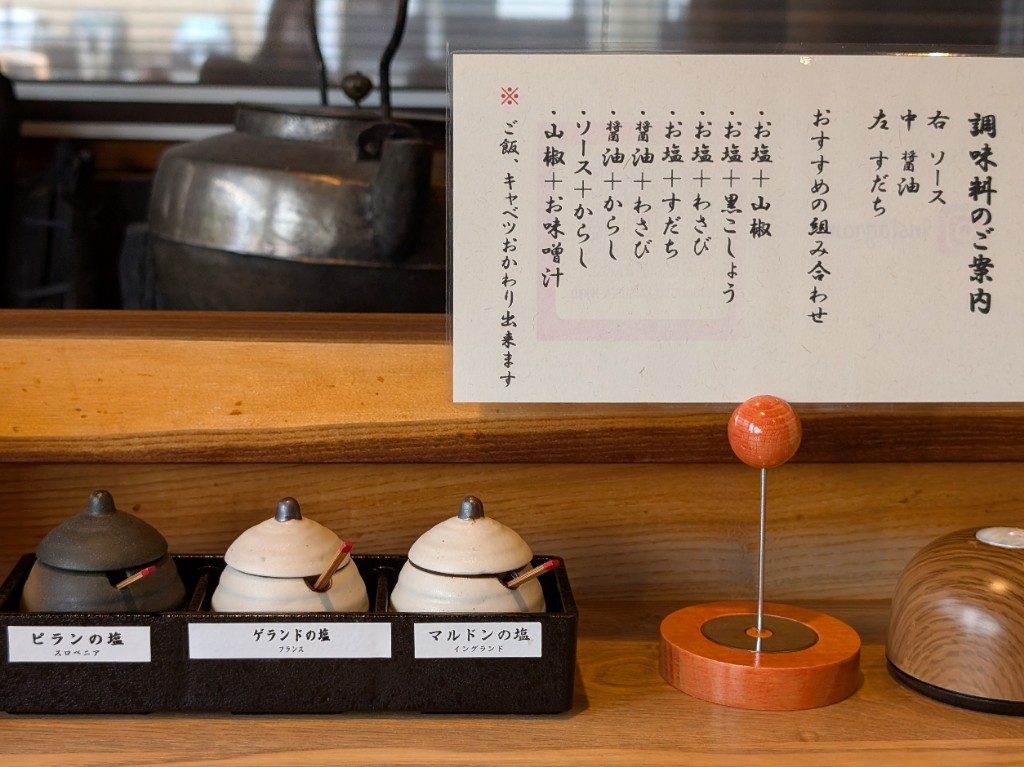 調味料のご案内
右 ソース
中 醤油
左 すだち
おすすめの組み合わせ
・お塩＋山椒
・お塩＋黒こしょう
・お塩＋わさび
・お塩＋すだち
・醤油＋わさび
・醤油＋からし
・ソース＋からし
・山椒＋お味噌汁
※ ご飯、キャベツおかわり出来ます
ピランの塩
スロベニア
ゲランドの塩
フランス
マルドンの塩
イングランド